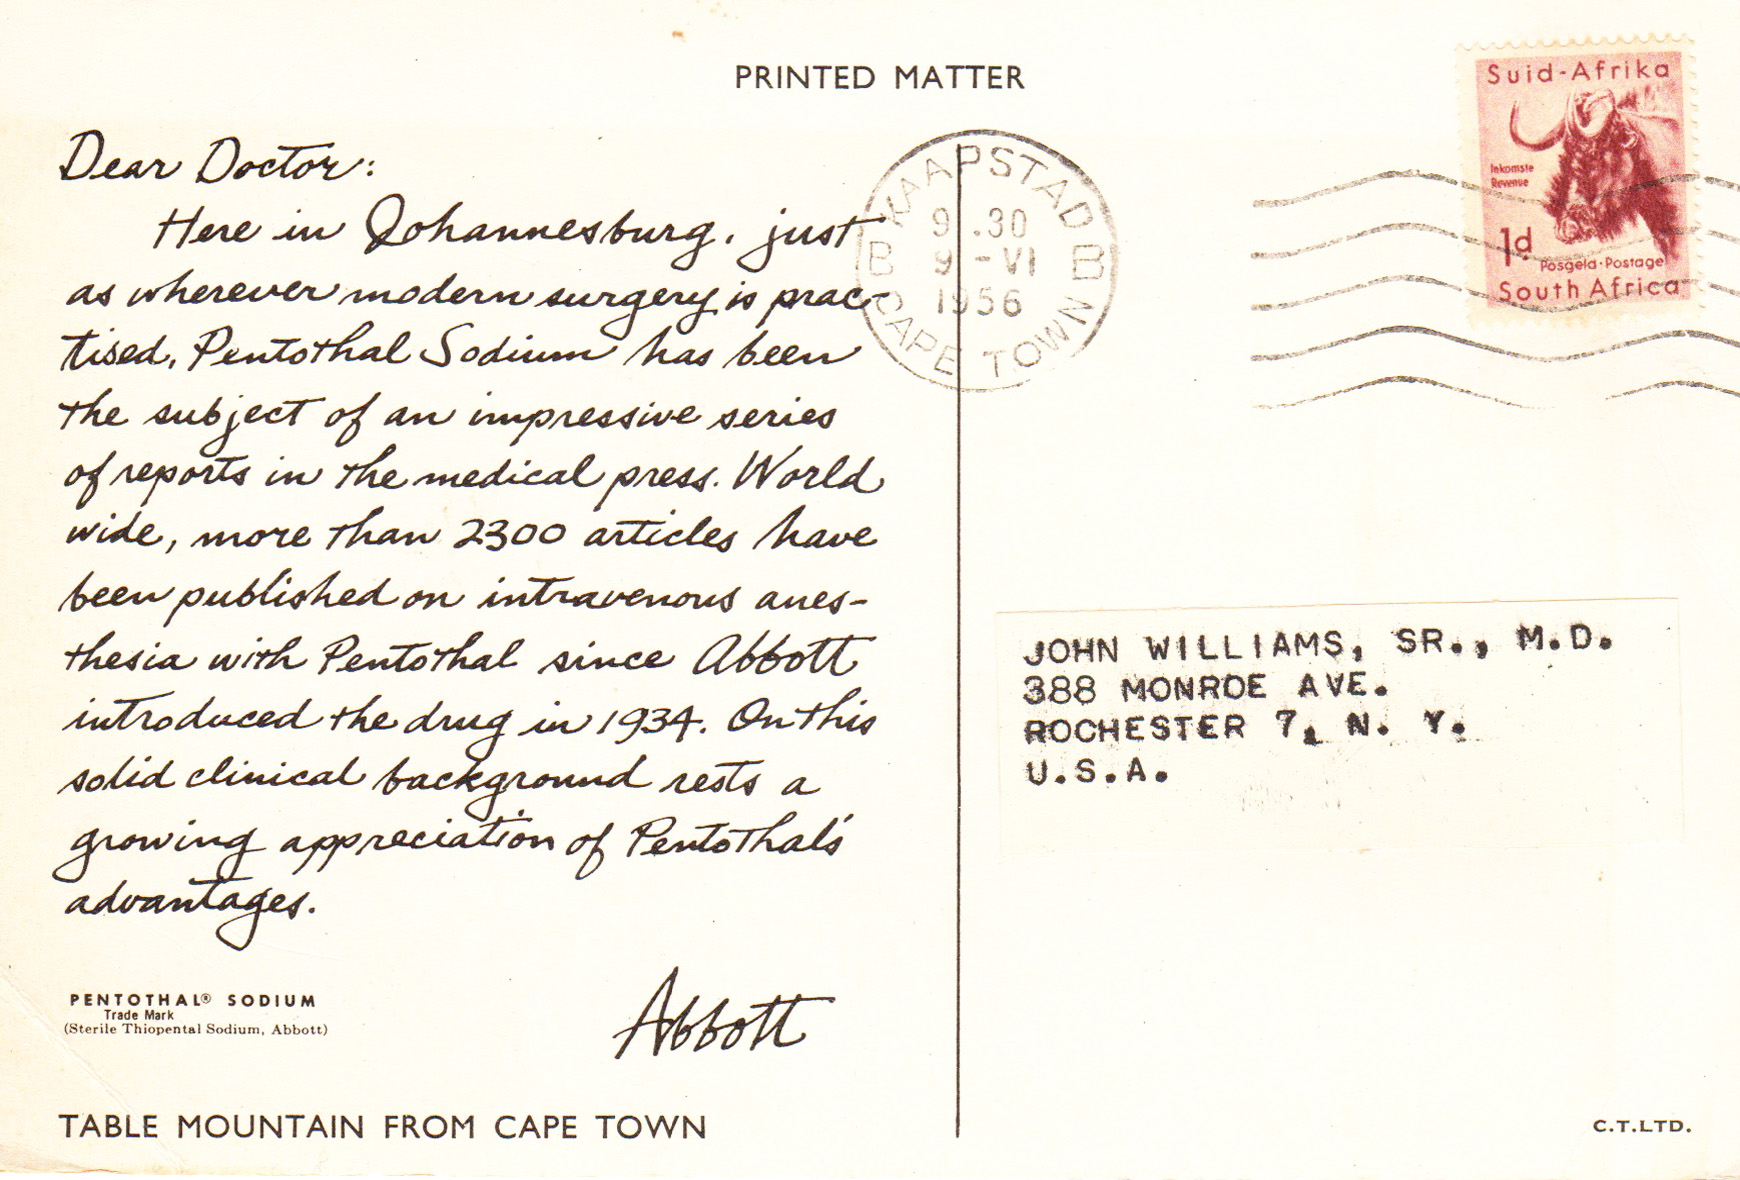 PRINTED MATTER
Dear Doctor:
Here in Johannesburg, just
as wherever modern surgery is prac-
tised, Pentothal Sodium has been
the subject of an impressive series
of reports in the medical press. World
wide, more than 2300 articles have
been published on intravenous anes-
thesia with Pentothal since Abbott
introduced the drug in 1934. On this
solid clinical background rests a
growing appreciation of Pentothal's
advantages.
Abbott
PENTOTHAL® SODIUM
Trade Mark
(Sterile Thiopental Sodium, Abbott)
TABLE MOUNTAIN FROM CAPE TOWN
KAAPSTAD
9.30
B 9-VI B
1956
CAPE TOWN
Suid-Afrika
Inkomste
Revenue
1d
Posgeld·Postage
South Africa
JOHN WILLIAMS, SR., M.D.
388 MONROE AVE.
ROCHESTER 7, N. Y.
U.S.A.
C.T.LTD.